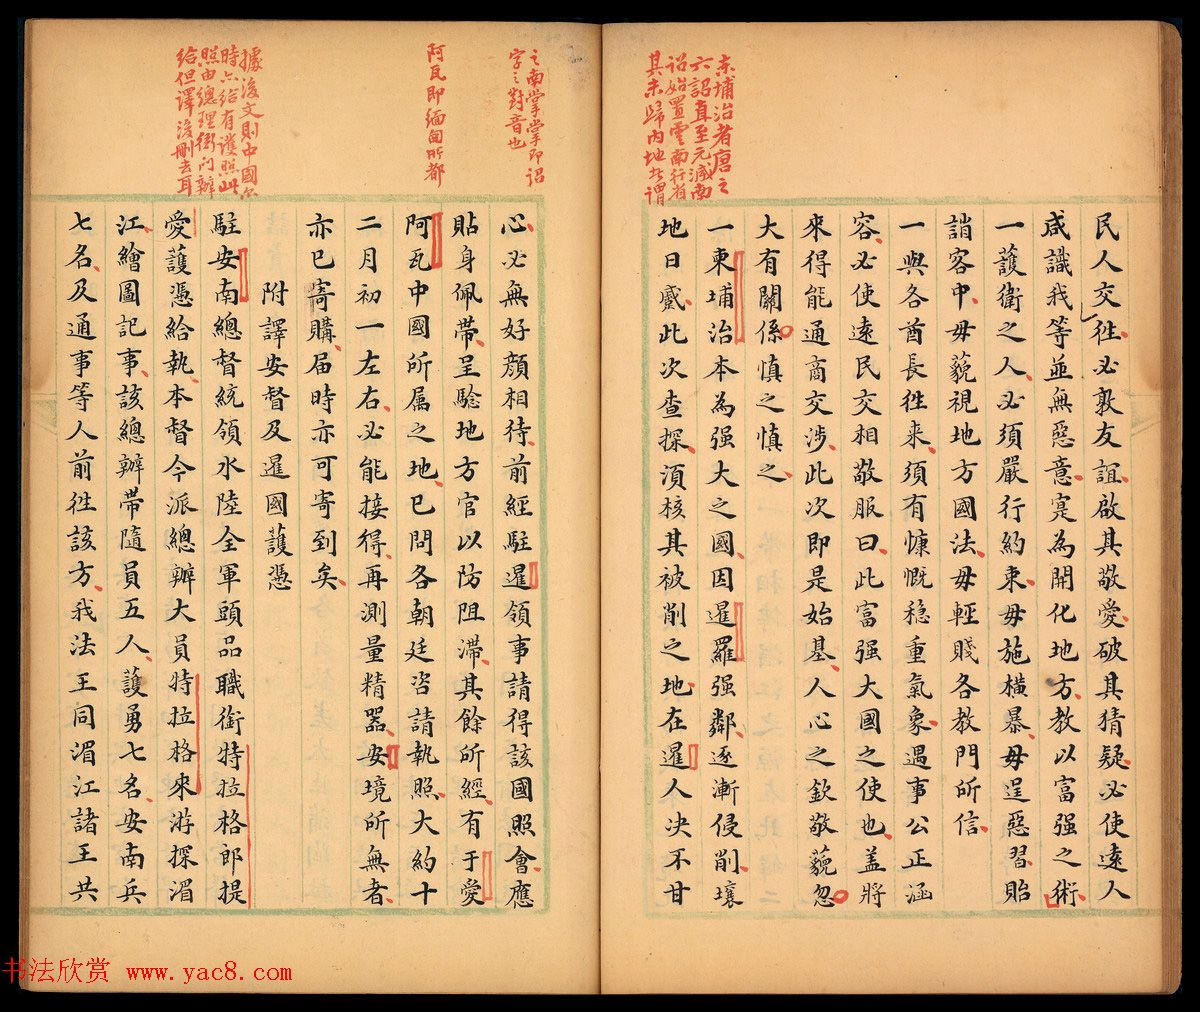 東埔治者唐之
六詔直至元滅南
詔始置雲南行省
其未歸內地者謂
民人交徃必敦友誼啟其敬愛破其猜疑必使遠人
咸識我等並無惡意寔為開化地方教以富强之術
一護衛之人必須嚴行約束毋施橫暴毋逞惡習貽
誚客中毋藐視地方國法毋輕賤各教門所信
一與各酋長徃来須有慷慨穏重氣象遇事公正涵
容必使遠民交相敬服曰此富强大國之使也蓋將
來得能通商交渉此次即是始基人心之欽敬藐忽
大有關係慎之慎之
一東埔治本為强大之國因暹羅强鄰逐漸侵削壤
地日蹙此次查探湏核其被削之地在暹人决不甘
之南掌掌即詔
字之對音也
阿瓦即緬甸所都
據後文則中國尔
時亦給有護照此
照由總理衙门辦
給但譯後刪去耳
心必無好顔相待前經駐暹領事請得該國照會應
貼身佩帶呈驗地方官以防阻滯其餘所經有于愛
阿瓦中國所属之地已問各朝廷咨請執照大約十
二月初一左右必能接得再測量精器安境所無者
亦已寄購届時亦可寄到矣
附譯安督及暹國護憑
駐安南總督統領水陸全軍頭品職銜特拉格郎提
愛護憑給執本督今派總辦大員特拉格來游探湄
江繪圖記事該總辦帶隨員五人護勇七名安南兵
七名及通事等人前徃該方我法王同湄江諸王共
书法欣赏 www.yac8.com